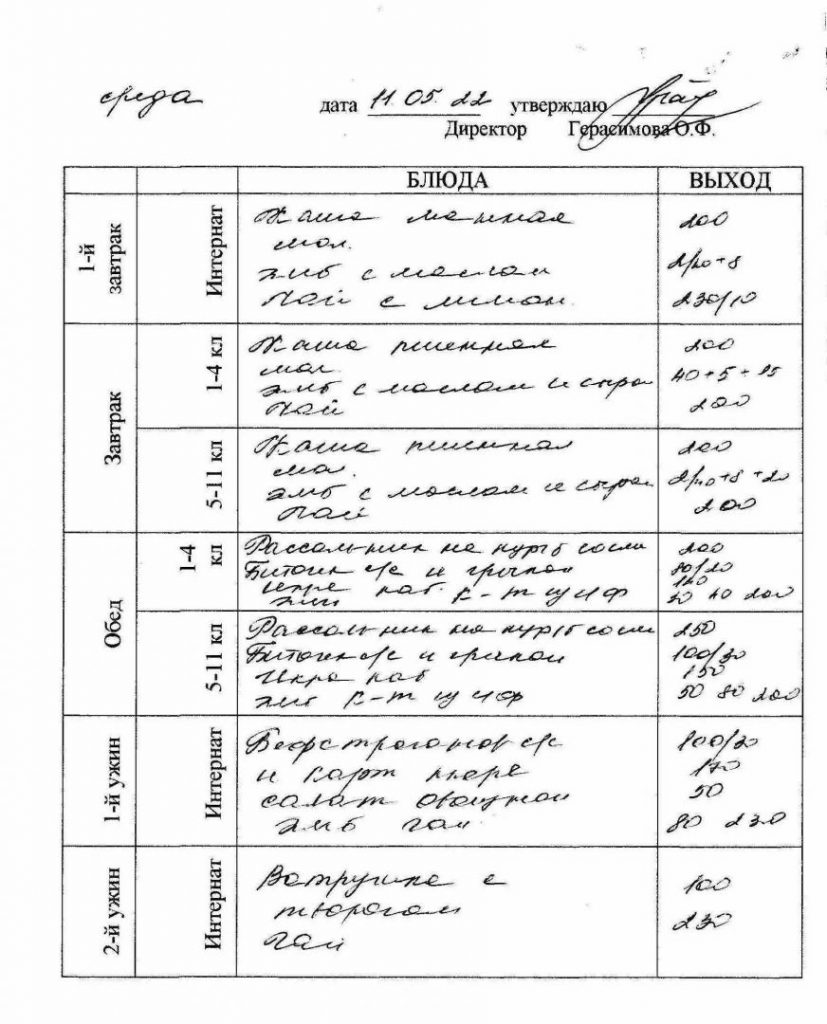 среда
дата 11.05.22 утверждаю
Директор Герасимова О.Ф.
БЛЮДА ВЫХОД
1-й завтрак Интернат
Каша манная 200
мол.
хлб с маслом 2/20+8
Чай с лимон. 230/10
Завтрак
1-4 кл
Каша пшенная 200
мол.
хлб с маслом и сыром 40+5+15
Чай 200
5-11 кл
Каша пшенная 200
мол.
хлб с маслом и сыром 2/20+8+20
Чай 200
Обед
1-4 кл
Рассольник на кур/б со см 200
Биточки с/с и гречкой
Икра каб. к-т ш
хлб 40 200
5-11 кл
Рассольник на кур/б со см 250
Биточки с/с и гречкой 100/30
Икра каб 150
хлб к-т ш 50 80 200
1-й ужин Интернат
Бефстроганов с/с 100/30
и карт пюре 170
салат овощной 50
хлб чай 80 230
2-й ужин Интернат
Ватрушка с 100
творогом 230
Чай